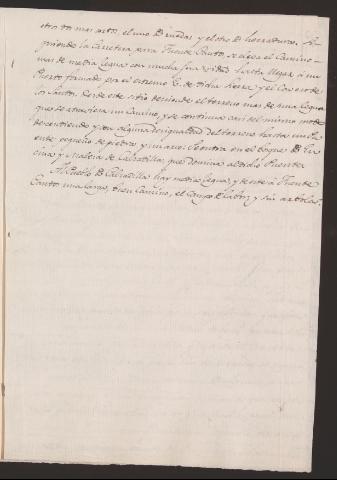 otro dos mas altos, el uno D. ruedas y el otro D. herraduras. Si-
guiendo la Carretera para Fuente Canto, se dexa el Camino
mas de media legua con mucha hasta llegar á un
Puerto formado por el extremo E. de dicha Sierra, y el Cerro de
los Santos. Desde este sitio desciende el terreno mas de una legua
que se atraviesa un Camino, y se continua casi del mismo modo
descendiendo y con alguna desigualdad del terreno hasta un Pu-
ente pequeño de piedra, y un arco: Se entra en el bosque D. En-
cina, y Maleza de Calzadilla, que domina al dicho Puente.
Al Pueblo D. Calzadilla hay media legua, y de este á Fuente
Canto una larga, buen Camino, el Campo D. labor, y sin arboles.